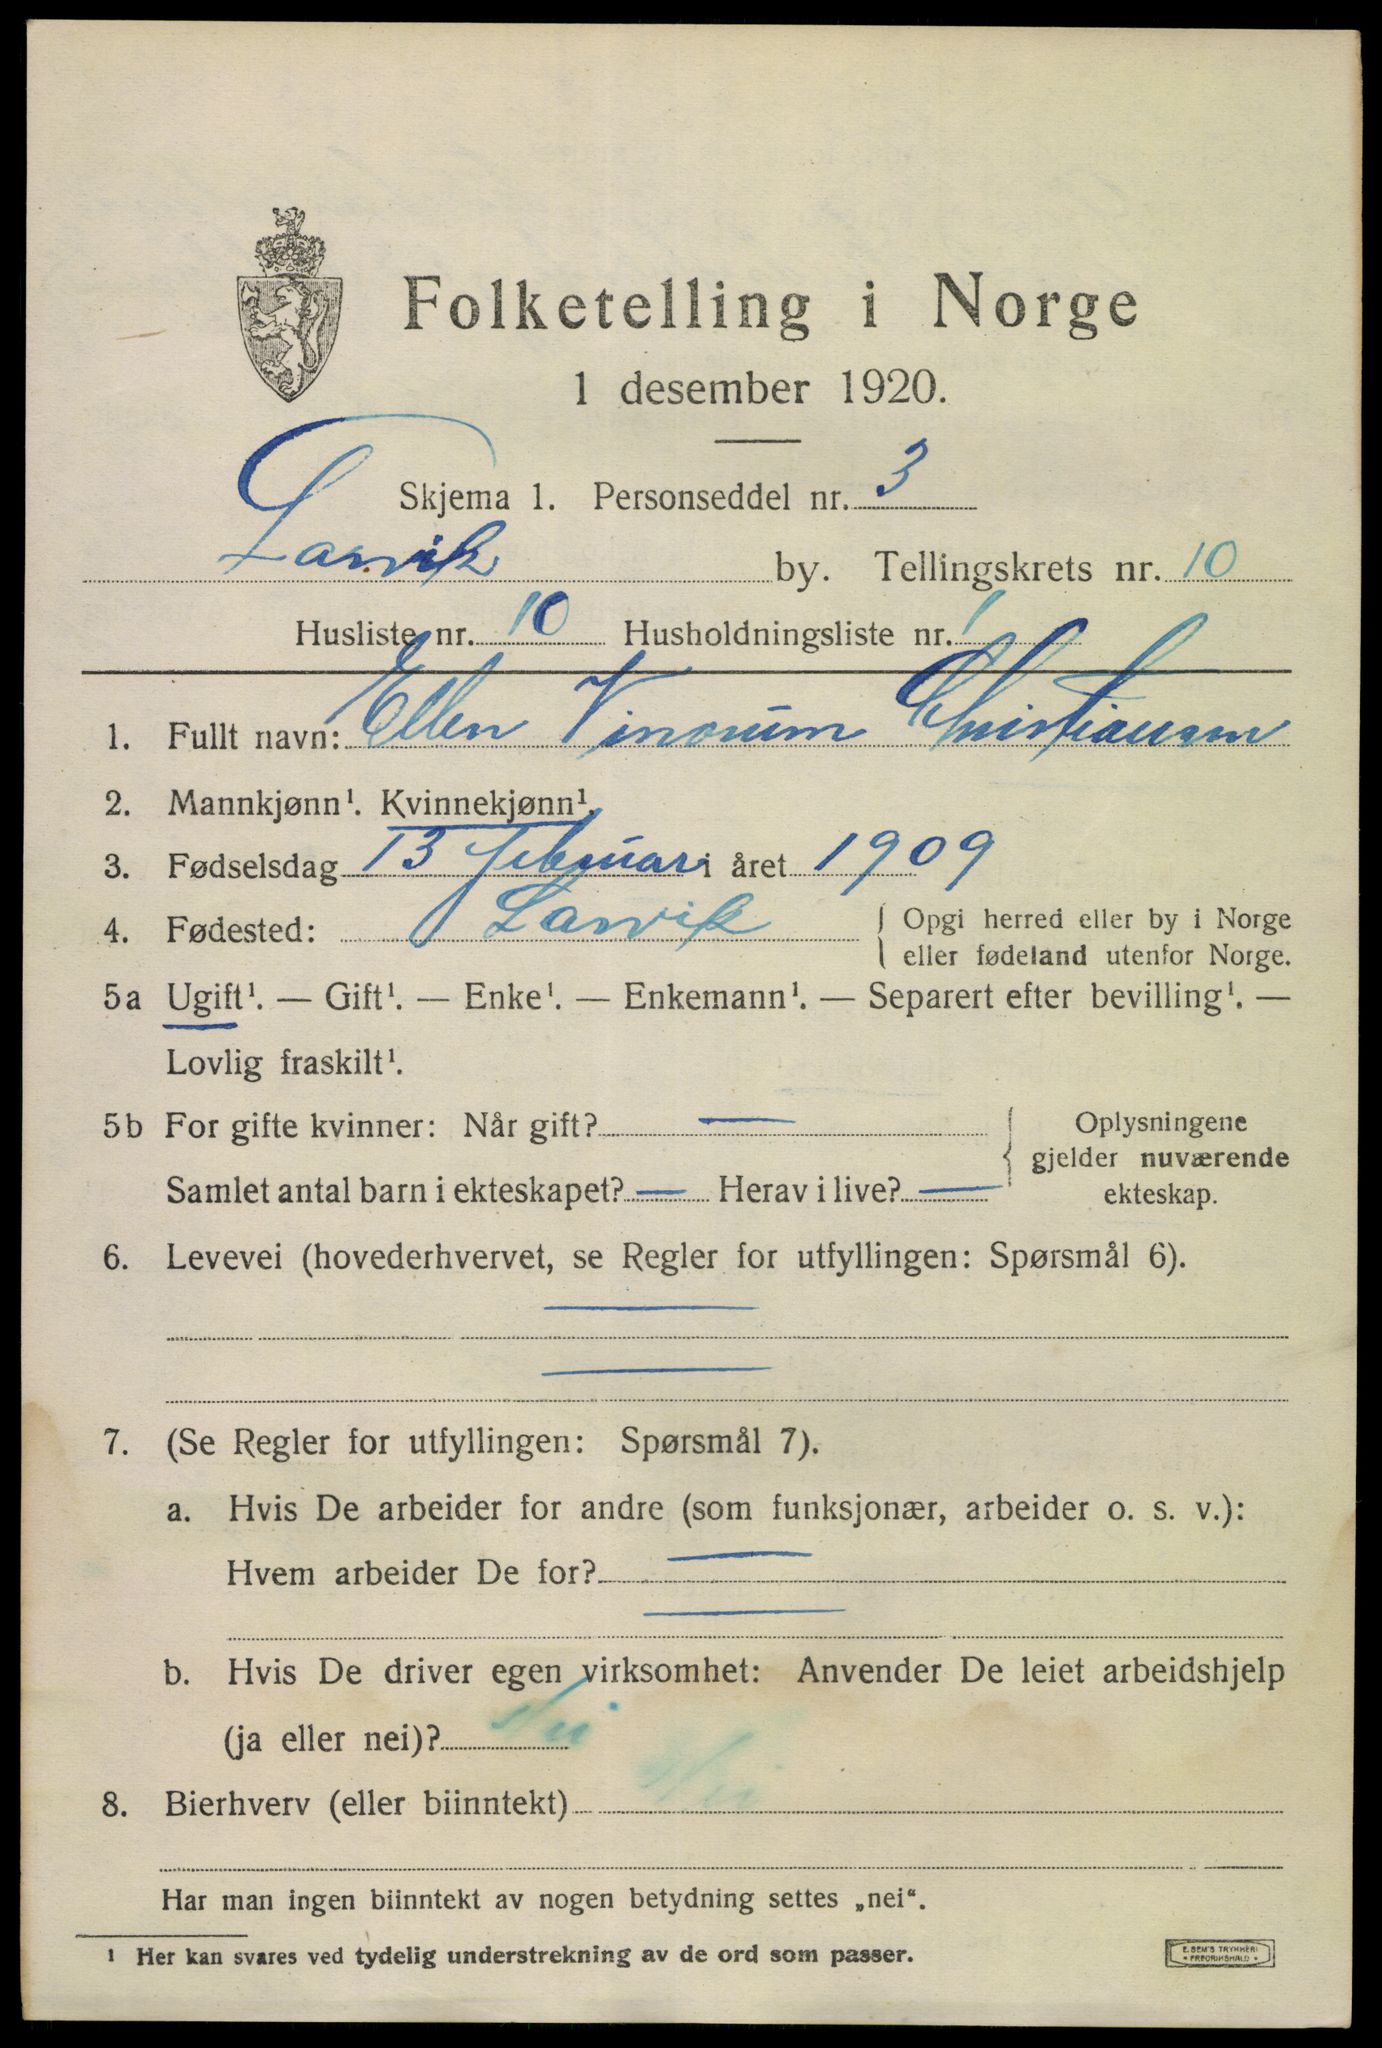 Folketelling i Norge
1 desember 1920.
Skjema 1. Personseddel nr. 3
Larvik by. Tellingskrets nr. 10
Husliste nr. 10 Husholdningsliste nr. 1
1. Fullt navn: Ellen Vinorum Christiansen
2. Mannkjønn¹. Kvinnekjønn¹.
3. Fødselsdag 13 februar i året 1909
4. Fødested: Larvik { Opgi herred eller by i Norge
eller fødeland utenfor Norge.
5a Ugift¹. — Gift¹. — Enke¹. — Enkemann¹. — Separert efter bevilling¹. —
Lovlig fraskilt¹.
5b For gifte kvinner: Når gift? — { Oplysningene
gjelder nuværende
Samlet antal barn i ekteskapet? — Herav i live? — ekteskap.
6. Levevei (hovederhvervet, se Regler for utfyllingen: Spørsmål 6).
—
—
7. (Se Regler for utfyllingen: Spørsmål 7).
a. Hvis De arbeider for andre (som funksjonær, arbeider o. s. v.):
Hvem arbeider De for? —
—
b. Hvis De driver egen virksomhet: Anvender De leiet arbeidshjelp
(ja eller nei)? Nei
8. Bierhverv (eller biinntekt) Nei
Har man ingen biinntekt av nogen betydning settes „nei“.
¹ Her kan svares ved tydelig understrekning av de ord som passer.
E. SEM'S TRYKKERI
FREDRIKSHALD